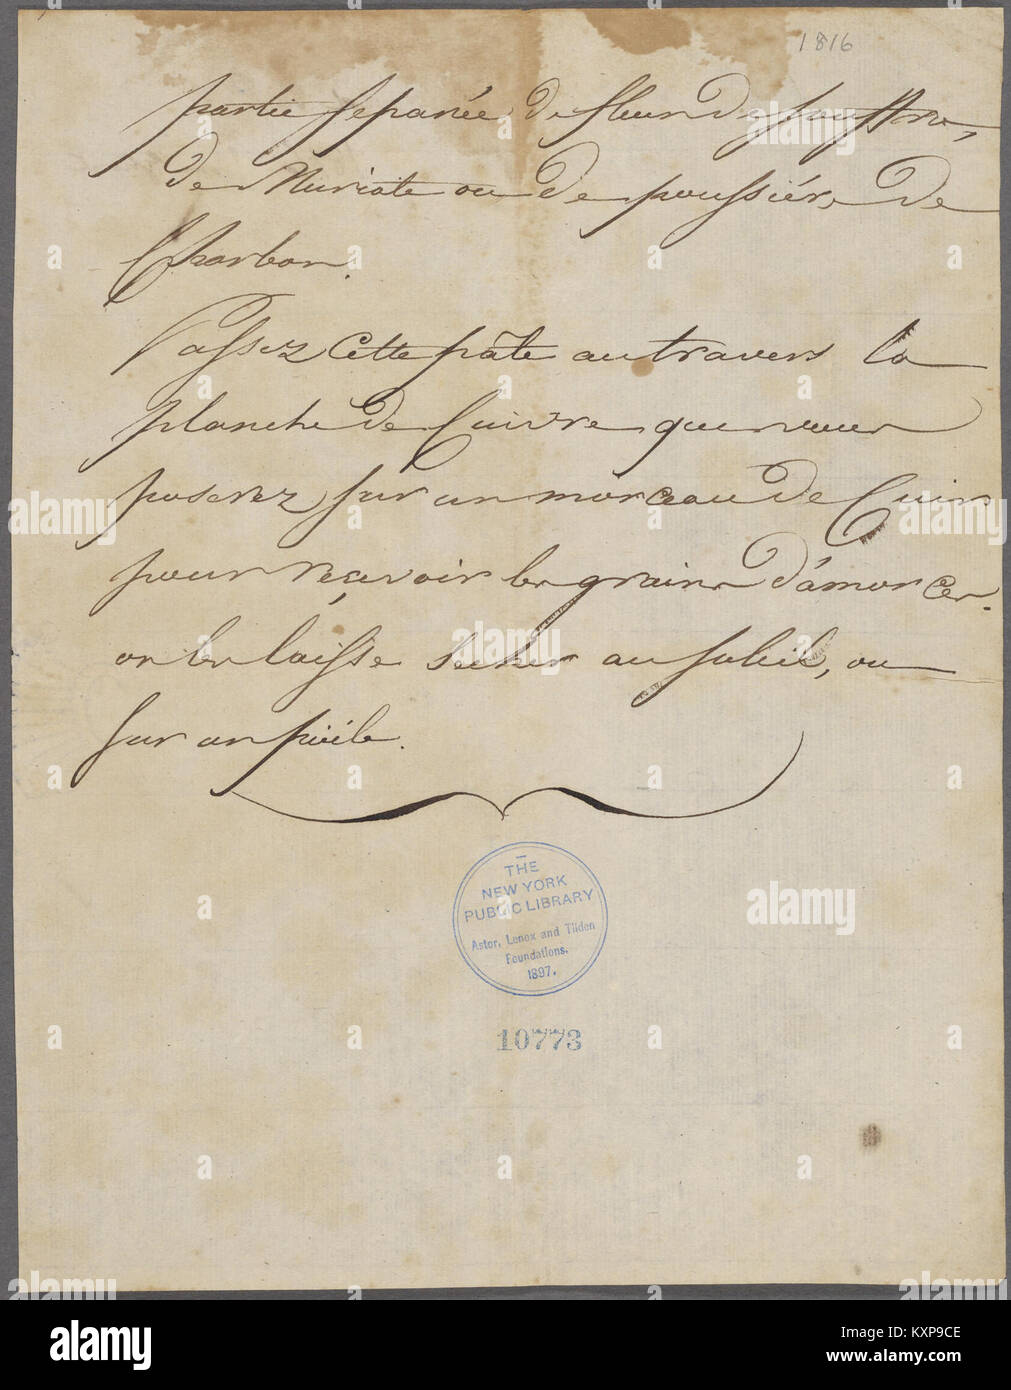 1816
partie separée de fleur de souffre,
de Muriate ou de poussiére de
Charbon.
Passez cette pâte au travers la
planche de Cuivre que vous
poserez sur un morceau de Cuir
pour reçevoir les grains d'amorces.
on les laisse secher au soleil, ou
sur un poële.
THE
NEW YORK
PUBLIC LIBRARY
Astor, Lenox and Tilden
Foundations.
1897.
10773
alamy
Image ID: KXP9CE
www.alamy.com